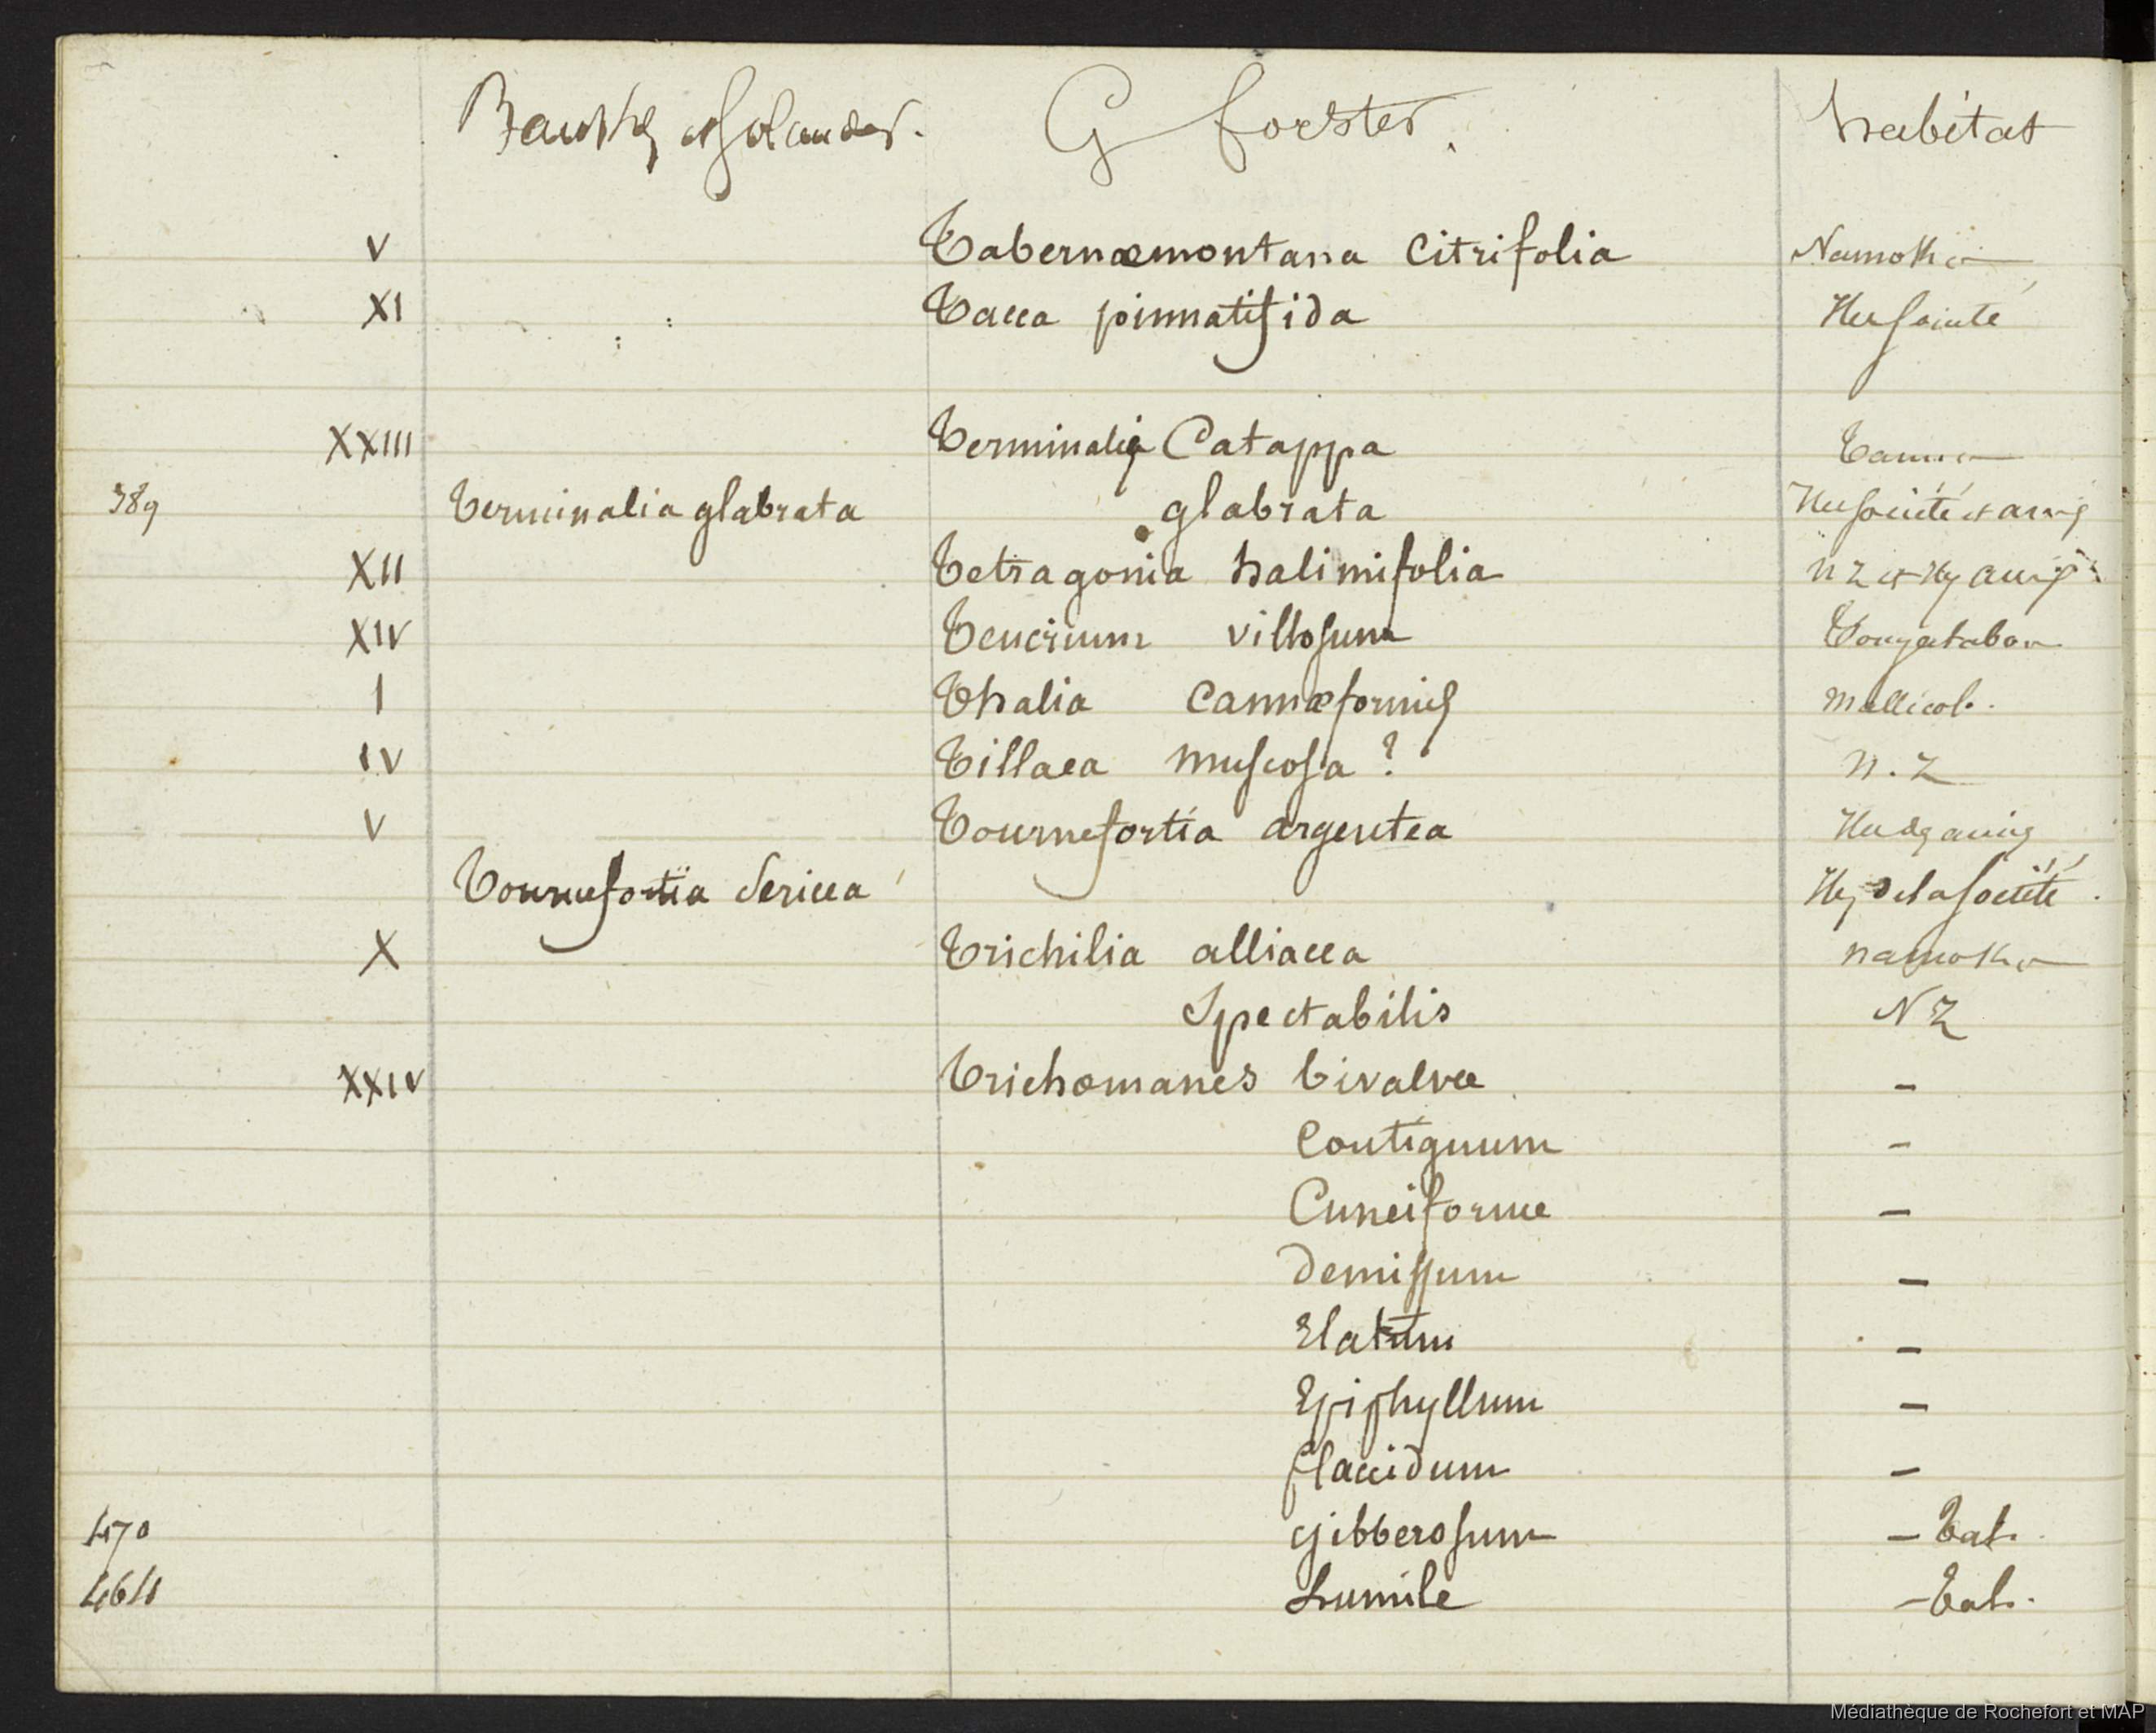 Banks et Solander. G forster. habitat
V Tabernæmontana Citrifolia Namoka
XI Tacca pinnatifida Iles Société
XXIII Terminalia Catappa Tanna
389 Terminalia glabrata glabrata Iles Société et amis
XII Tetragonia halimifolia N Z et Is amis
XIV Teucrium villosum Tongatabou
I Thalia Cannæformis Mallicol.
IV Tillaea muscosa ? N. Z
V Tournefortia argentea Iles des amis
Tournefortia Sericea Is de la Société
X Trichilia alliacea namoka
Spectabilis N Z
XXIV Trichomanes bivalve –
Contiguum –
Cuneiforme –
demissum –
Elatum –
Epiphyllum –
flaccidum –
470 gibberosum – Tat.
464 humile – Tat.
Médiathèque de Rochefort et MAP